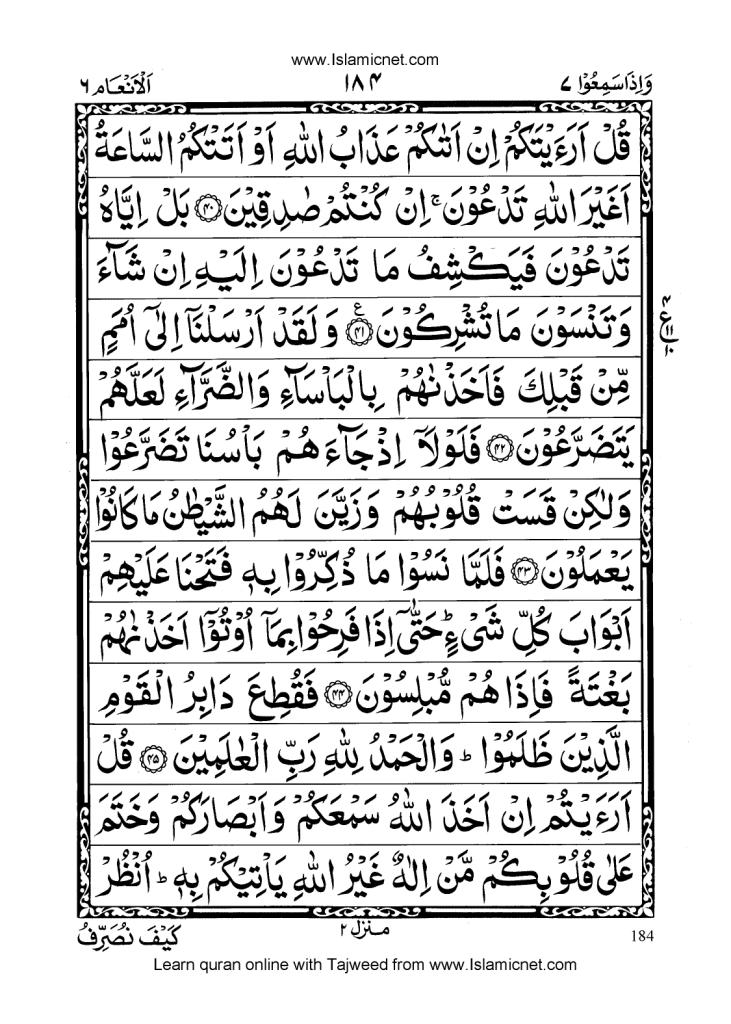 www.Islamicnet.com
وَاِذَا سَمِعُوْا ٧
١٨۴
اَلْاَنْعَام ٦
قُلْ اَرَءَيْتَكُمْ اِنْ اَتٰىكُمْ عَذَابُ اللّٰهِ اَوْ اَتَتْكُمُ السَّاعَةُ
اَغَيْرَ اللّٰهِ تَدْعُوْنَ ۚ اِنْ كُنْتُمْ صٰدِقِيْنَ ﴿۴۰﴾ بَلْ اِيَّاهُ
تَدْعُوْنَ فَيَكْشِفُ مَا تَدْعُوْنَ اِلَيْهِ اِنْ شَآءَ
وَتَنْسَوْنَ مَا تُشْرِكُوْنَ ﴿۴۱﴾ ع وَلَقَدْ اَرْسَلْنَاۤ اِلٰۤى اُمَمٍ
۴
ع ١١
١٠
مِّنْ قَبْلِكَ فَاَخَذْنٰهُمْ بِالْبَاْسَآءِ وَالضَّرَّآءِ لَعَلَّهُمْ
يَتَضَرَّعُوْنَ ﴿۴۲﴾ فَلَوْلَاۤ اِذْ جَآءَهُمْ بَاْسُنَا تَضَرَّعُوْا
وَلٰكِنْ قَسَتْ قُلُوْبُهُمْ وَزَيَّنَ لَهُمُ الشَّيْطٰنُ مَا كَانُوْا
يَعْمَلُوْنَ ﴿۴۳﴾ فَلَمَّا نَسُوْا مَا ذُكِّرُوْا بِهٖ فَتَحْنَا عَلَيْهِمْ
اَبْوَابَ كُلِّ شَيْءٍ ؕ حَتّٰۤى اِذَا فَرِحُوْا بِمَاۤ اُوْتُوْۤا اَخَذْنٰهُمْ
بَغْتَةً فَاِذَا هُمْ مُّبْلِسُوْنَ ﴿۴۴﴾ فَقُطِعَ دَابِرُ الْقَوْمِ
الَّذِيْنَ ظَلَمُوْا ؕ وَالْحَمْدُ لِلّٰهِ رَبِّ الْعٰلَمِيْنَ ﴿۴۵﴾ قُلْ
اَرَءَيْتُمْ اِنْ اَخَذَ اللّٰهُ سَمْعَكُمْ وَاَبْصَارَكُمْ وَخَتَمَ
عَلٰى قُلُوْبِكُمْ مَّنْ اِلٰهٌ غَيْرُ اللّٰهِ يَاْتِيْكُمْ بِهٖ ؕ اُنْظُرْ
184
منزل ٢
كَيْفَ نُصَرِّفُ
Learn quran online with Tajweed from www.Islamicnet.com